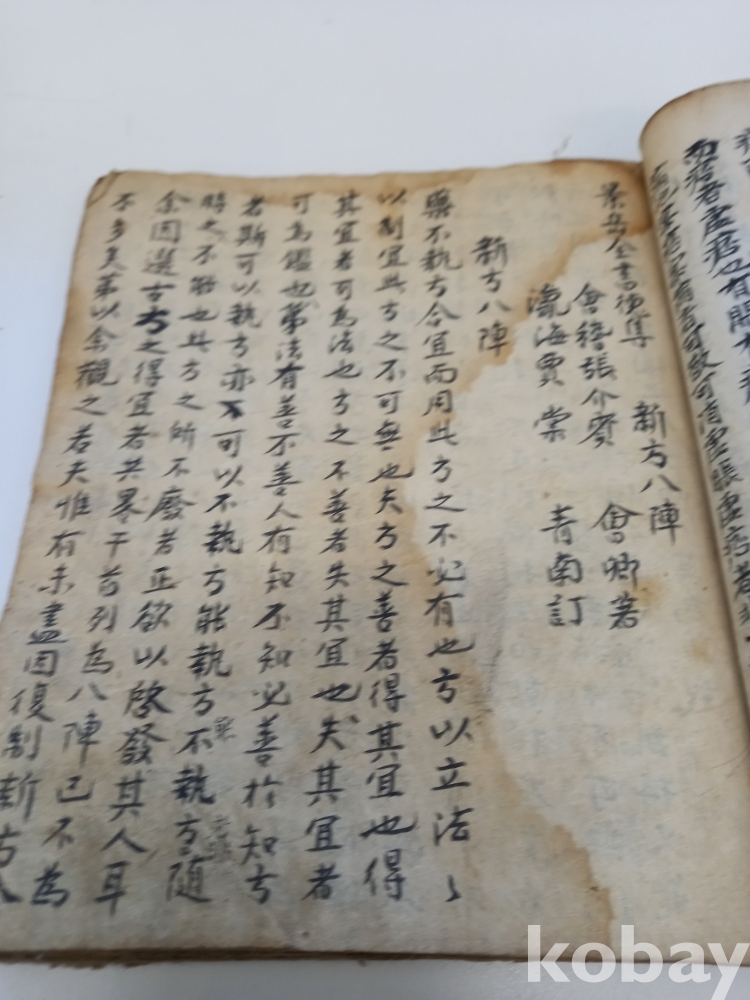 而痞者虛痞也有
景岳全書德集 新方八陣
會稽張介賓 會卿著
瀛海賈棠 青南訂
新方八陣
藥不執方合宜而用此方之不必有也方以立法〻
以制宜此方之不可無也夫方之善者得其宜也得
其宜者可為法也方之不善者失其宜也失其宜者
可為鑑也第法有善不善人有知不知必善於知方
者斯可以執方亦不可以不執方能執方不執方隨
時之不能也此方之所不廢者正欲以啟發其人耳
余因選古方之得宜者共畧干首列為八陣已不為
不多矣第以余觀之若夫惟有未盡因復制新方八
kobay